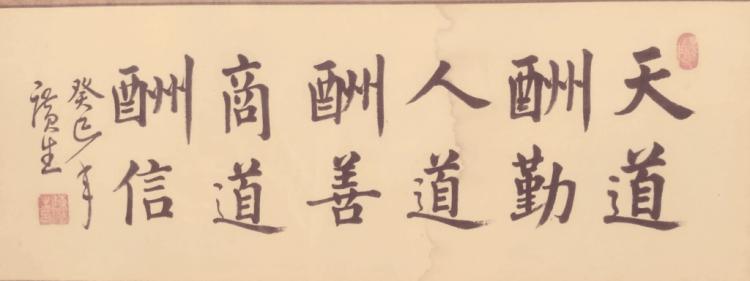 天道
酬勤
人道
酬善
商道
酬信
癸巳年
生